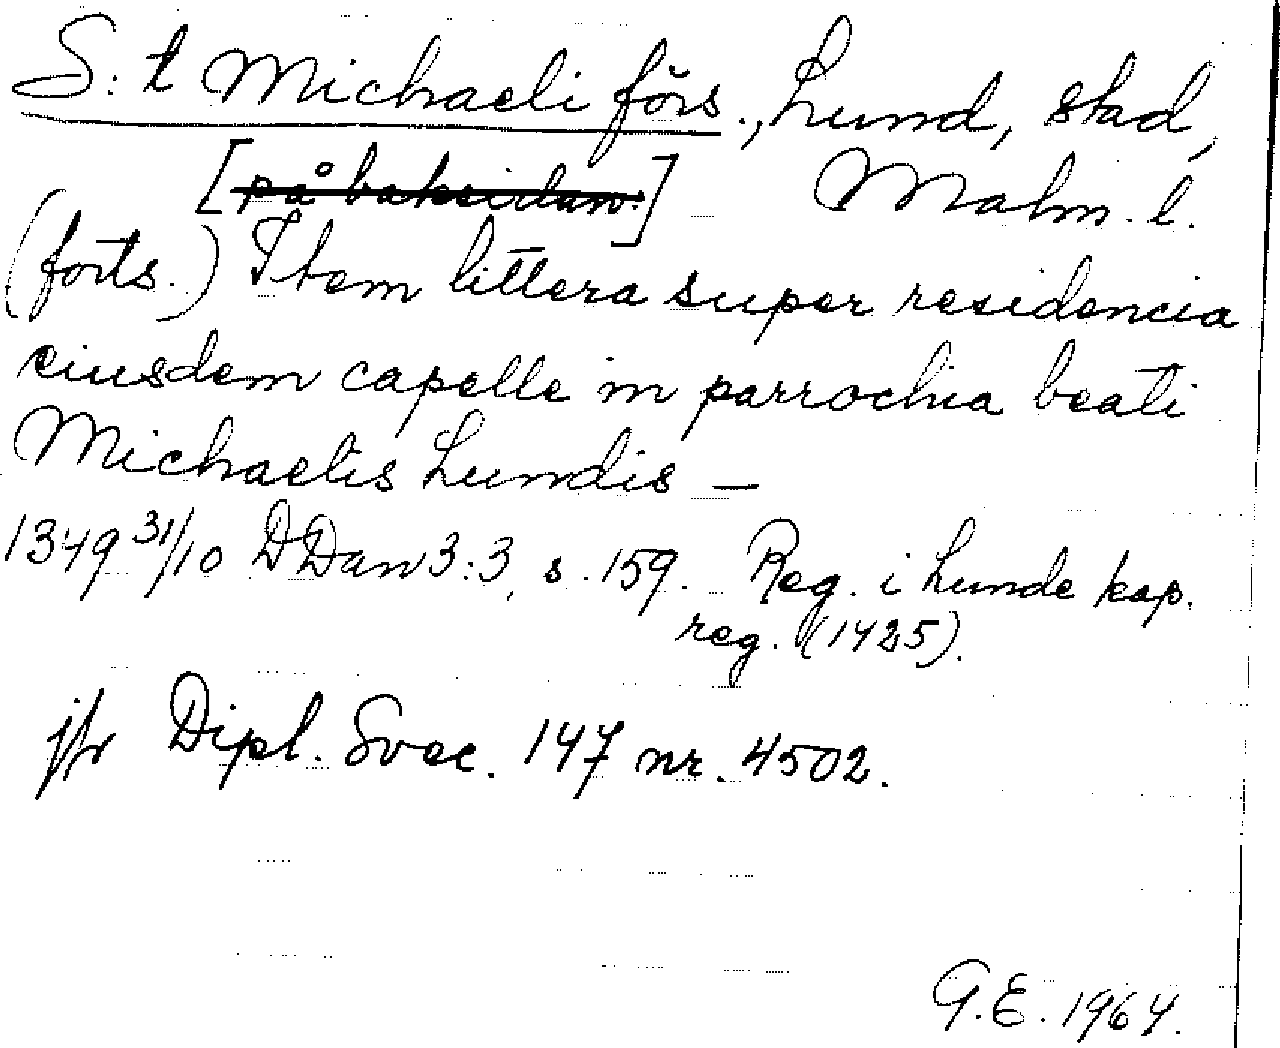 S:t Michaeli förs., Lund, stad,
[på baksidan.] Malm. l.
(forts.) Item littera super residencia
eiusdem capelle in parrochia beati
Michaelis Lundis –
1349 31/10 DDan 3:3, s. 159. Reg. i Lunde kap.
reg. (1425).
jfr Dipl. Svec. 147 nr. 4502.
G.E. 1964.